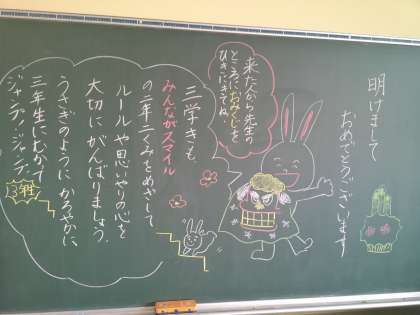 明けまして
おめでとうございます
来た人から先生の
ところにおみくじを
ひきにきてね。
三学きも、
みんながスマイル
の二年二くみをめざして
ルールや思いやりの心を
大切にがんばりましょう。
うさぎのように かろやかに
三年生にむかって
ジャンプ・ジャンプ
3年生